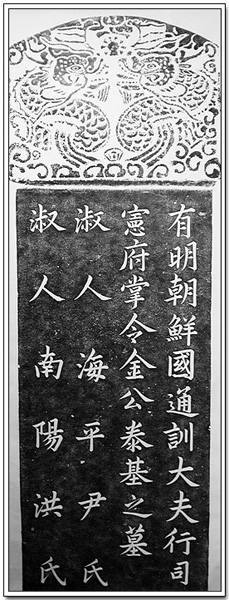 有明朝鮮國通訓大夫行司
憲府掌令金公泰基之墓
淑人海平尹氏
淑人南陽洪氏